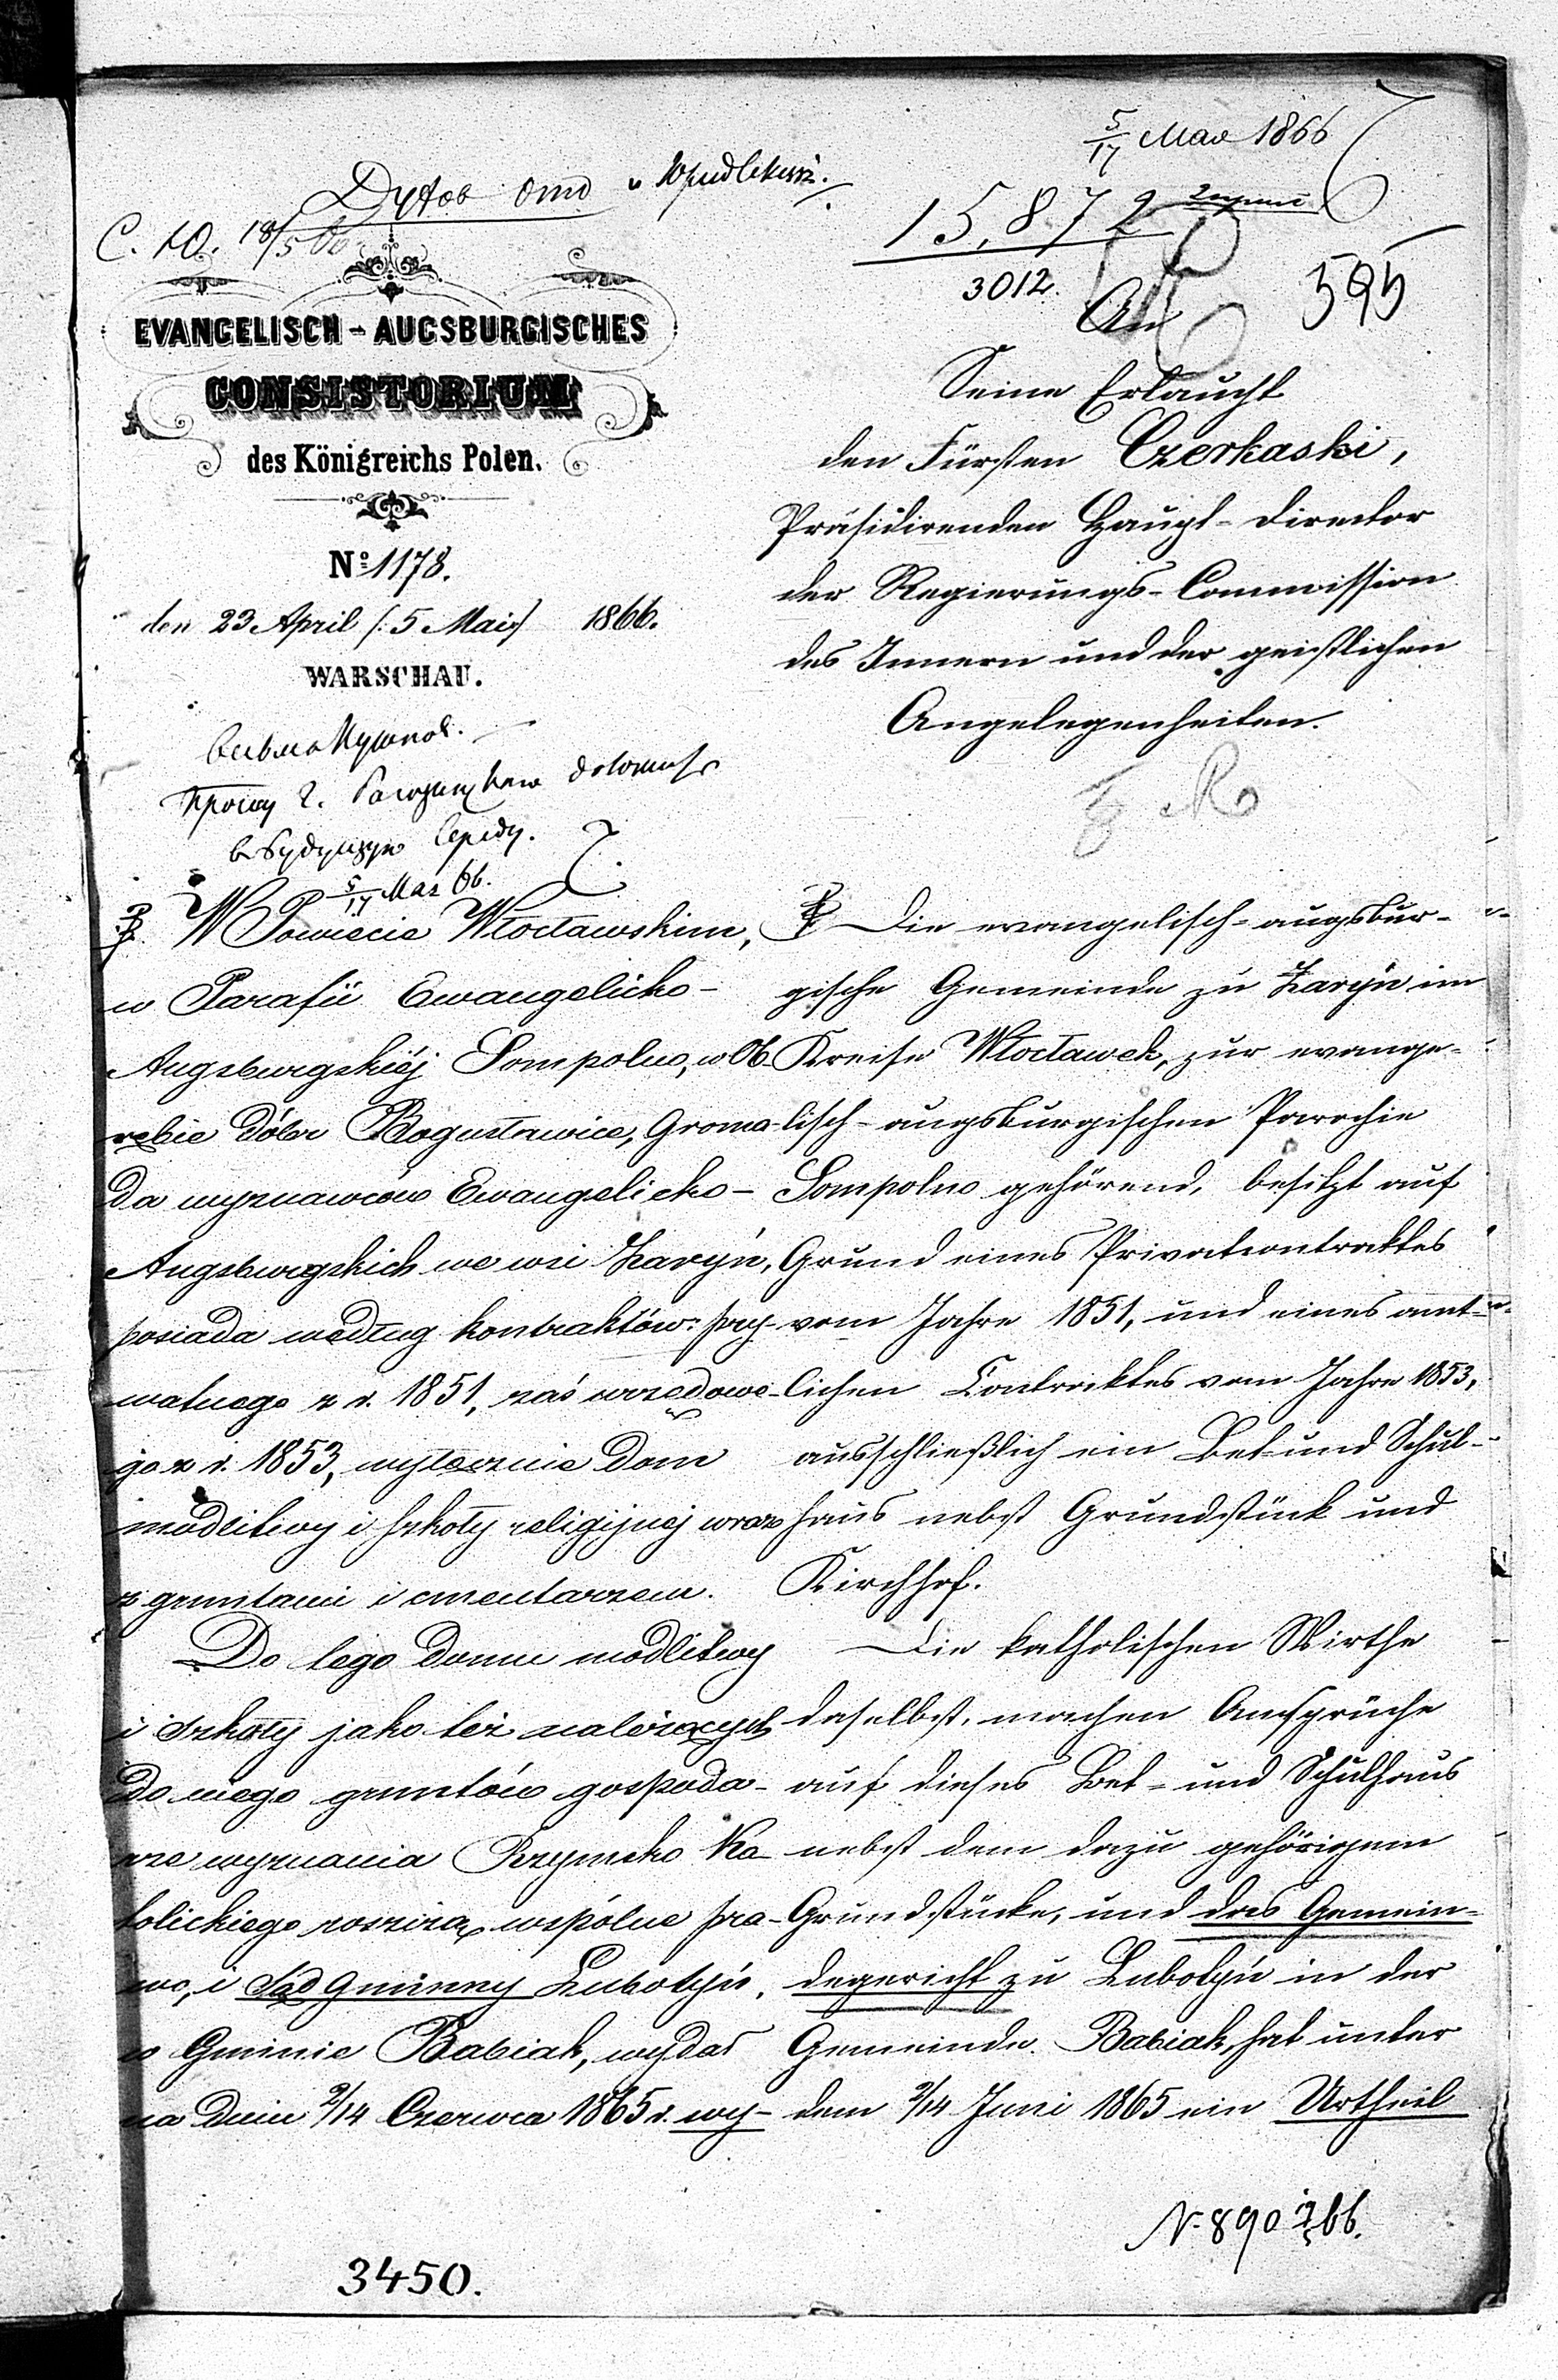 5/17 Мая 1866
Духов отд
C. 10. 18/5 66
15,872
3012.
595
An
EVANGELISCH-AUGSBURGISCHES
CONSISTORIUM
des Königreichs Polen.
Nº 1178.
den 23 April (: 5 Mai:) 1866.
WARSCHAU.
Seine Erlaucht
den Fürsten Czerkaski,
Präsidirenden Haupt-Director
der Regierungs-Commission
des Innern und der geistlichen
Angelegenheiten.
Прошу г. доложить
в будущую Середу.
5/17 Мая 66.
W Powiecie Włocławskim,
w Parafii Ewangelicko-
Augsburgskiéj Sompolno, w Ob-
rębie dóbr Bogusławice, Groma-
da wyznawców Ewangelicko-
Augsburgskich we wsi Zaryń,
posiada według kontraktów: pry-
watnego z r. 1851, zaś urzędowe-
go z r. 1853, wyłącznie dom
modlitwy i szkoły religijnéj wraz
z gruntami i cmentarzem.
Do tego domu modlitwy
i szkoły jako też należących
do niego gruntów gospoda-
rze wyznania Rzymsko Ka-
tolickiego roszczą wspólne pra-
wo, i Sąd Gminny Lubotyń,
w Gminie Babiak, wydał
na dniu 2/14 Czerwca 1865 r. wy-
Die evangelisch-augsbur-
gische Gemeinde zu Zaryń im
Kreise Włocławek, zur evange-
lisch-augsburgischen Parochie
Sompolno gehörend, besitzt auf
Grund eines Privatcontraktes
vom Jahre 1851, und eines amt-
lichen Contraktes vom Jahre 1853,
ausschließlich ein Bet- und Schul-
haus nebst Grundstück und
Kirchhof.
Die katholischen Wirthe
daselbst, machen Ansprüche
auf dieses Bet- und Schulhaus
nebst dem dazu gehörigem
Grundstücke, und das Gemein-
degericht zu Lubotyń in der
Gemeinde Babiak, hat unter
dem 2/14 Juni 1865 ein Urtheil
N. 890 66.
3450.